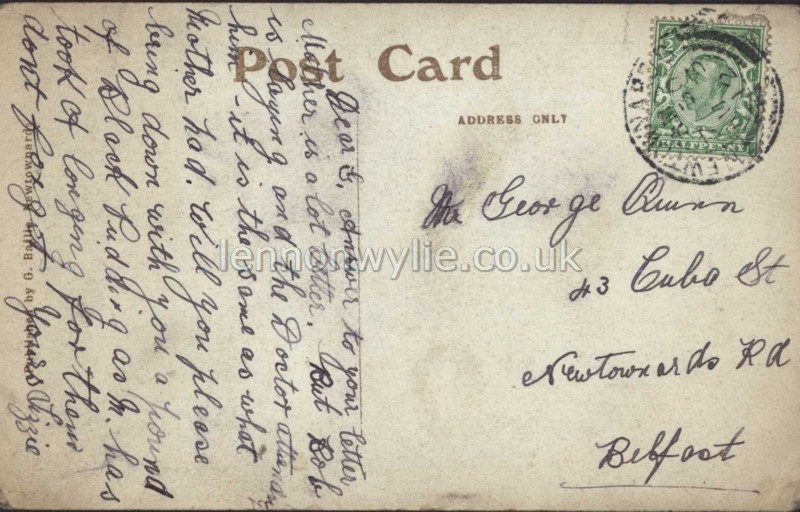 Post Card
ADDRESS ONLY
HALFPENNY
Dear G, Answer to your letter
Mother is a lot better. But Bob
is laying and the Doctor attending
him - it is the same as what
Mother had. Will you please
bring down with you a pound
of Black Pudding as M. has
took of longing for them
dont forget Yours Lizzie
Mr George Quinn
43 Cuba St
Newtownards Rd
Belfast
lennonwylie.co.uk
by G. Newtownards